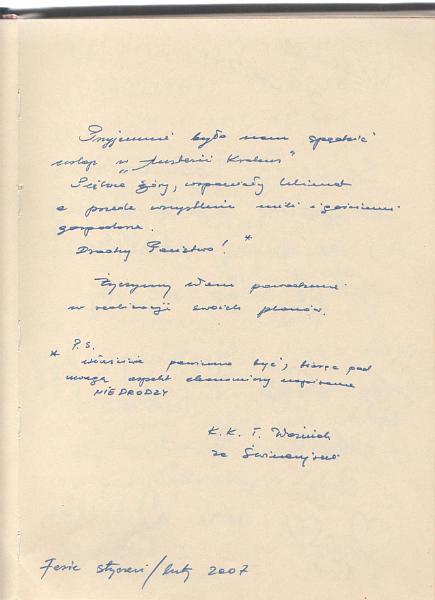 Przyjemnie było nam spędzić
urlop w "Austerii Krokus"
Piękne góry, wspaniały klimat
a przede wszystkim mili i gościnni
gospodarze.
Drodzy Państwo! *
Życzymy Wam powodzenia
w realizacji swoich planów.
P.S.
* właściwie powinno być, biorąc pod
uwagę aspekt ekonomiczny napisane
NIEDRODZY
K. K. T.
ze
styczeń/luty 2007